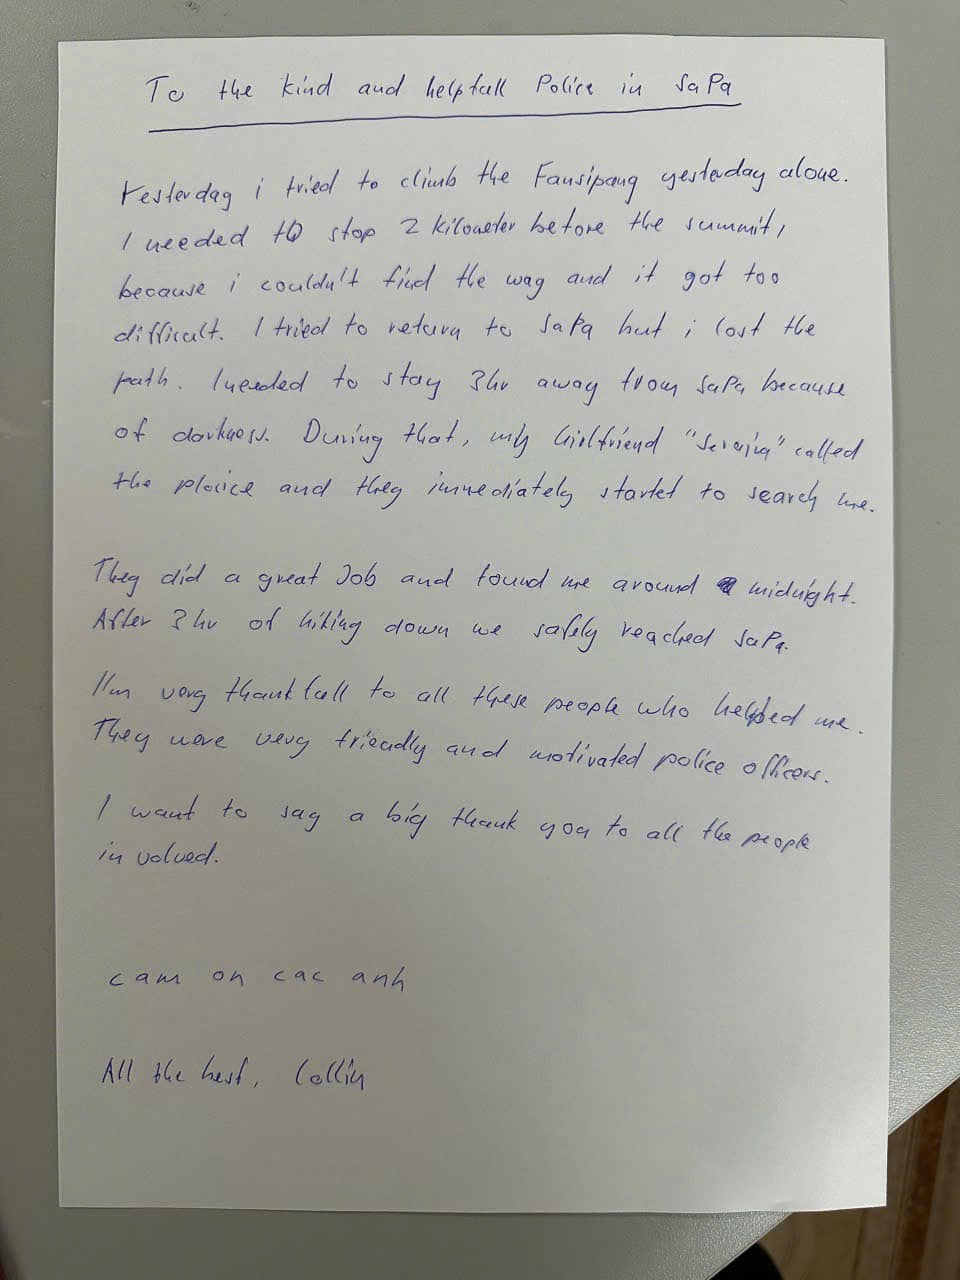 To the kind and helpfull Police in SaPa
Yesterday i tried to climb the Fansipang yesterday alone.
I needed to stop 2 kilometer before the summit,
because i couldn't find the way and it got too
difficult. I tried to return to SaPa but i lost the
path. I needed to stay 3hr away from SaPa because
of darkness. During that, my Girlfriend "" called
the plocice and they immediately startet to search me.
They did a great Job and found me around midnight.
After 3hr of hiking down we safely reached SaPa.
I'm very thankfull to all these people who helped me.
They were very friendly and motivated police officers.
I want to say a big thank you to all the people
involved.
cam on cac anh
All the best, Collin